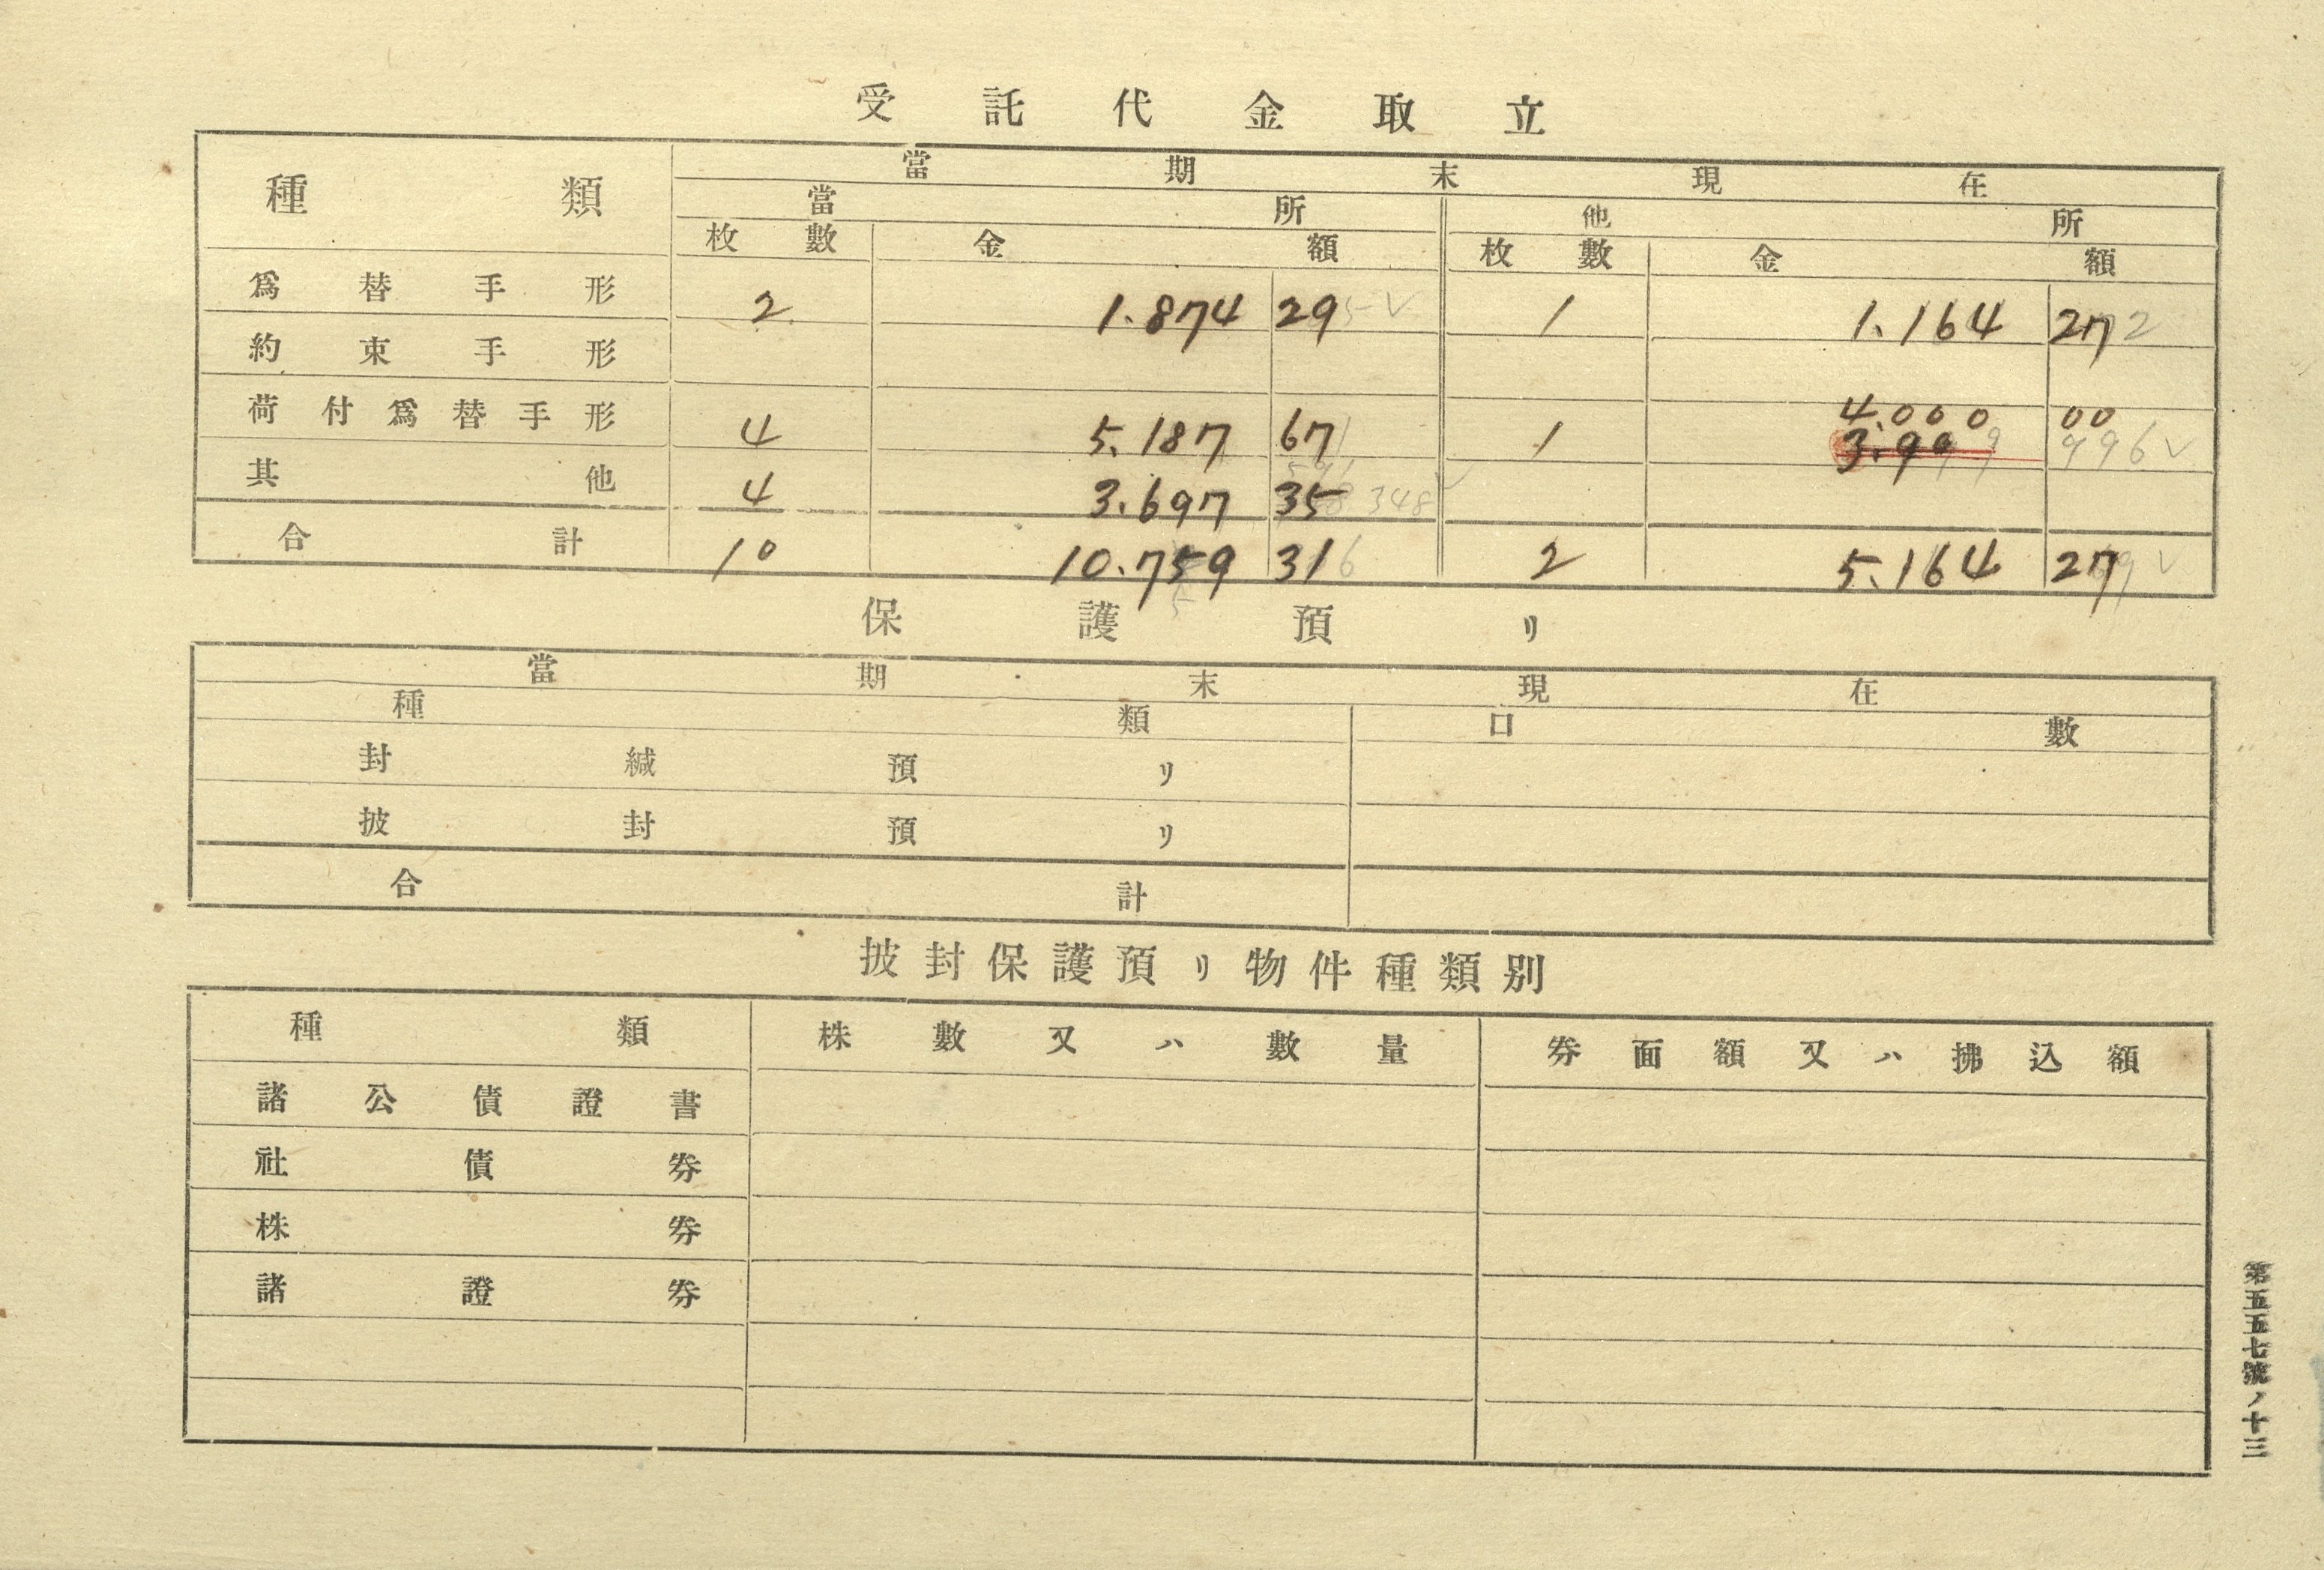 受託代金取立
種類 當期末現在
當所 他所
枚數 金額 枚數 金額
爲替手形 2 1.874 29 1 1.164 27
約束手形
荷付爲替手形 4 5.187 67 1 4.000 00
3.99
其他 4 3.697 35 348
合計 10 10.759 31 2 5.164 27
保護預リ
當期末現在
種類 口數
封緘預リ
披封預リ
合計
披封保護預リ物件種類別
種類 株數又ハ數量 券面額又ハ拂込額
諸公債證書
社債券
株券
諸證券
第五五七號ノ十三